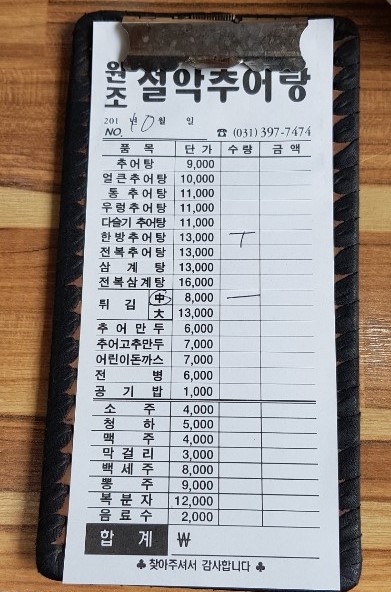 원조 설악추어탕
201 년 월 일
NO. 10 ☎ (031) 397-7474
품 목 단 가 수 량 금 액
추어탕 9,000
얼큰추어탕 10,000
통 추어탕 11,000
우렁추어탕 11,000
다슬기 추어탕 11,000
한방추어탕 13,000 T
전복추어탕 13,000
삼 계 탕 13,000
전복삼계탕 16,000
튀 김 中 8,000 一
大 13,000
추 어 만 두 6,000
추어고추만두 7,000
어린이돈까스 7,000
전 병 6,000
공 기 밥 1,000
소 주 4,000
청 하 5,000
맥 주 4,000
막 걸 리 3,000
백 세 주 8,000
뽕 주 9,000
복 분 자 12,000
음 료 수 2,000
합 계 ₩
♣ 찾아주셔서 감사합니다 ♣